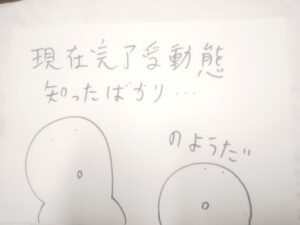 現在完了受動態
知ったばかり…
のようだ